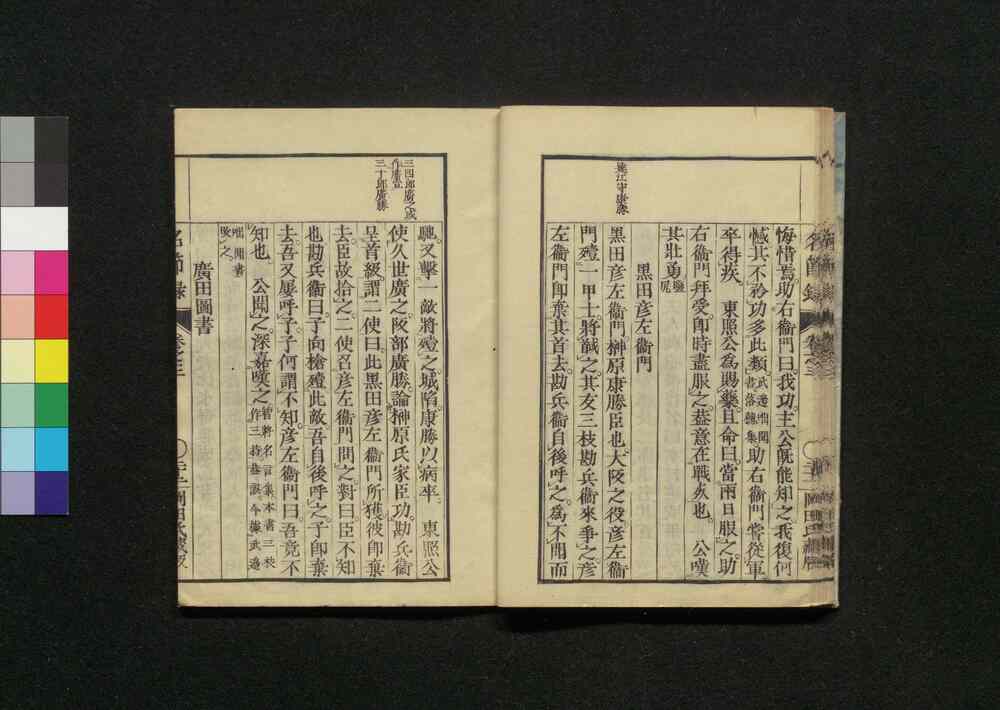 悔惜焉助右衞門曰我功主公既能知之我復何
憾其不矜功多此類武邊咄聞書落穗集助右衞門嘗從軍
卒得疾東照公爲賜藥且命曰當兩日服之助
右衞門拜受即時盡服之蓋意在戰死也公嘆
其壯勇
黒田彦左衞門
黒田彦左衞門榊原康勝臣也大阪之役彦左衞
門殪一甲士將馘之其友三枝勘兵衞來爭之彦
左衞門即棄其首去勘兵衞自後呼之爲不聞而
遠江守康勝
三四郎廣之或
作廣宣
三十郎廣勝
馳又擊一敵將殪之城陷康勝以病卒東照公
使久世廣之阪部廣勝論榊原氏家臣功勘兵衞
呈首級謂二使曰此黒田彦左衞門所獲彼即棄
去臣故拾之二使召彦左衞門問之對曰臣不知
也勘兵衞曰子向槍殪此敵吾自後呼之子即棄
去吾又屢呼子子何謂不知彦左衞門曰吾竟不
知也公聞之深嘉嘆之皆將名言集本書三枝作三持蓋誤今據武邊
咄聞書改之
廣田圖書
名節錄
卷之三